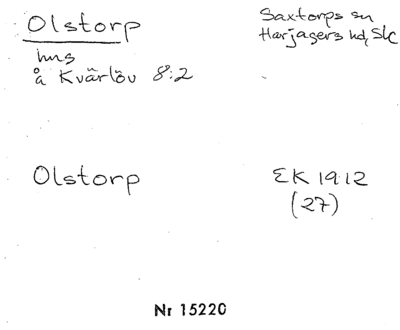 Olstorp
Saxtorps sn
Harjagers hd, Sk
hus
å Kvärlöv 8:2
Olstorp
EK 1912
(27)
Nr 15220